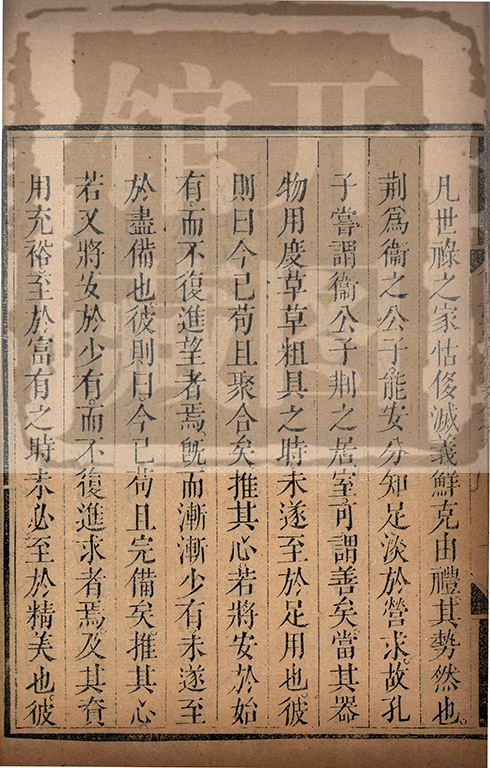 凡世祿之家怙侈滅義鮮克由禮其勢然也
荆爲衞之公子能安分知足淡於營求故孔
子嘗謂衞公子荆之居室可謂善矣當其器
物用度草草粗具之時未遂至於足用也彼
則曰今已苟且聚合矣推其心若將安於始
有而不復進望者焉旣而漸漸少有未遂至
於盡備也彼則曰今已苟且完備矣推其心
若又將安於少有而不復進求者焉及其資
用充裕至於富有之時未必至於精美也彼